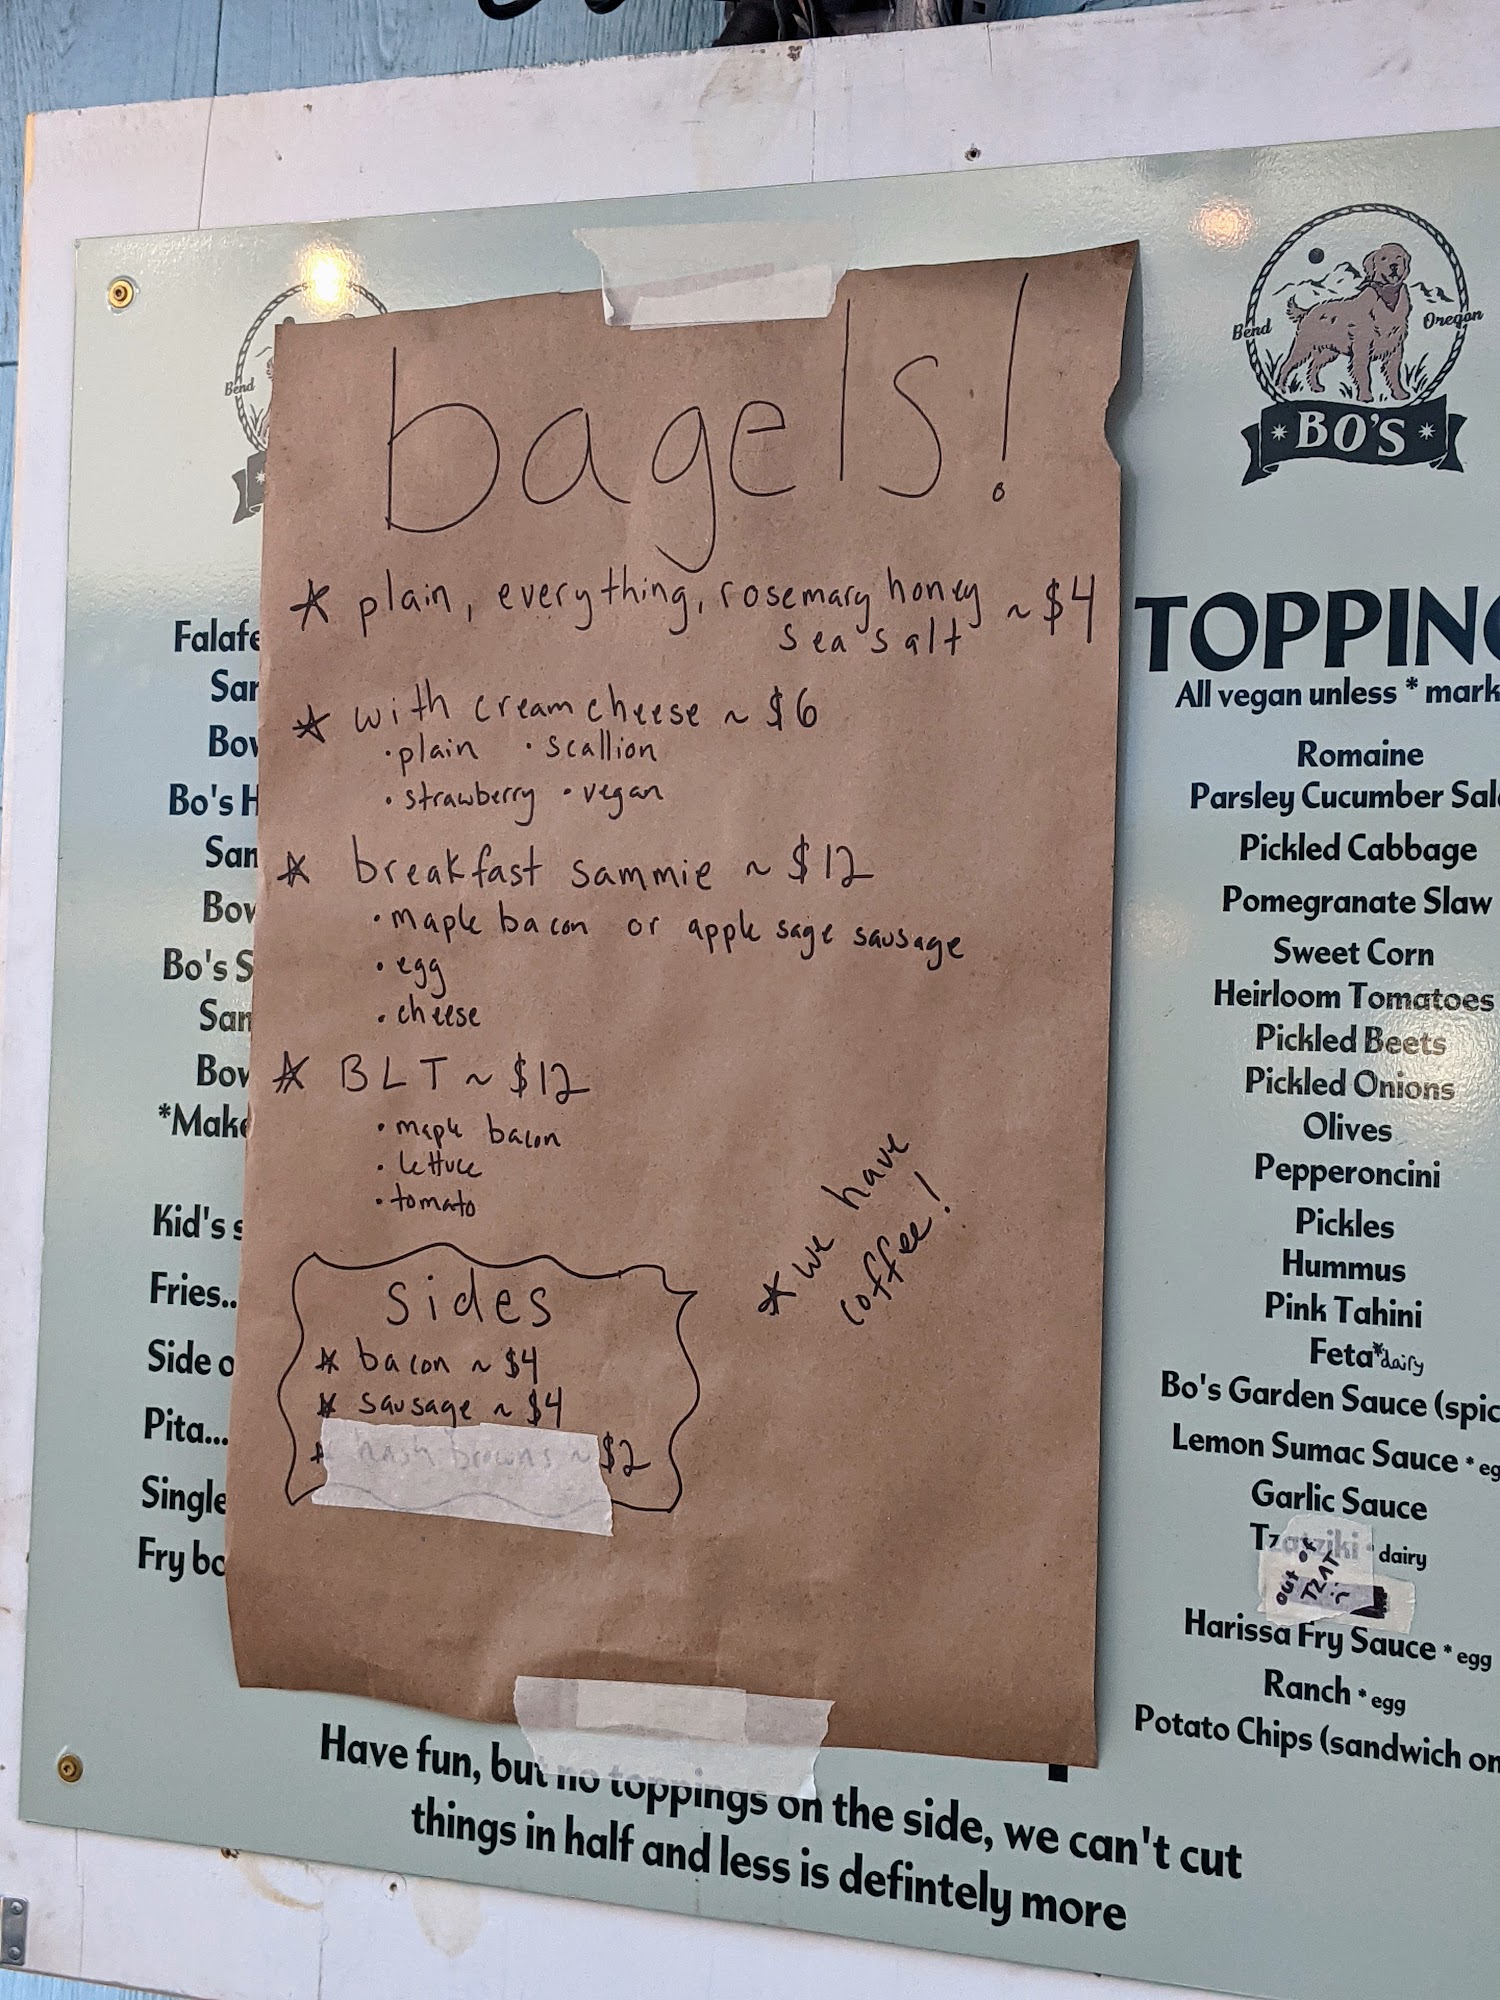 bagels!
* plain, everything, rosemary honey ~ $4
sea salt
* with cream cheese ~ $6
· plain · scallion
· strawberry · vegan
* breakfast sammie ~ $12
· maple bacon or apple sage sausage
· egg
· cheese
* BLT ~ $12
· maple bacon
· lettuce
· tomato
* we have
coffee!
sides
* bacon ~ $4
* sausage ~ $4
* hash browns ~ $2
Bend
Falafe
San
Bow
Bo's H
San
Bow
Bo's S
San
Bow
*Make
Kid's s
Fries..
Side o
Pita...
Single
Fry bo
Bend Oregon
*BO'S*
TOPPING
All vegan unless * mark
Romaine
Parsley Cucumber Sala
Pickled Cabbage
Pomegranate Slaw
Sweet Corn
Heirloom Tomatoes
Pickled Beets
Pickled Onions
Olives
Pepperoncini
Pickles
Hummus
Pink Tahini
Feta*dairy
Bo's Garden Sauce (spic
Lemon Sumac Sauce *eg
Garlic Sauce
Tzatziki * dairy
out of
TZAT
:(
Harissa Fry Sauce * egg
Ranch * egg
Potato Chips (sandwich on
Have fun, but no toppings on the side, we can't cut
things in half and less is defintely more